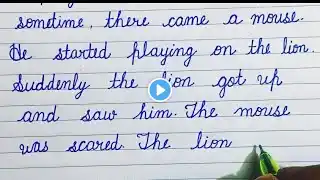 sometime, there came a mouse.
He started playing on the lion.
Suddenly the lion got up
and saw him. The mouse
was scared. The lion